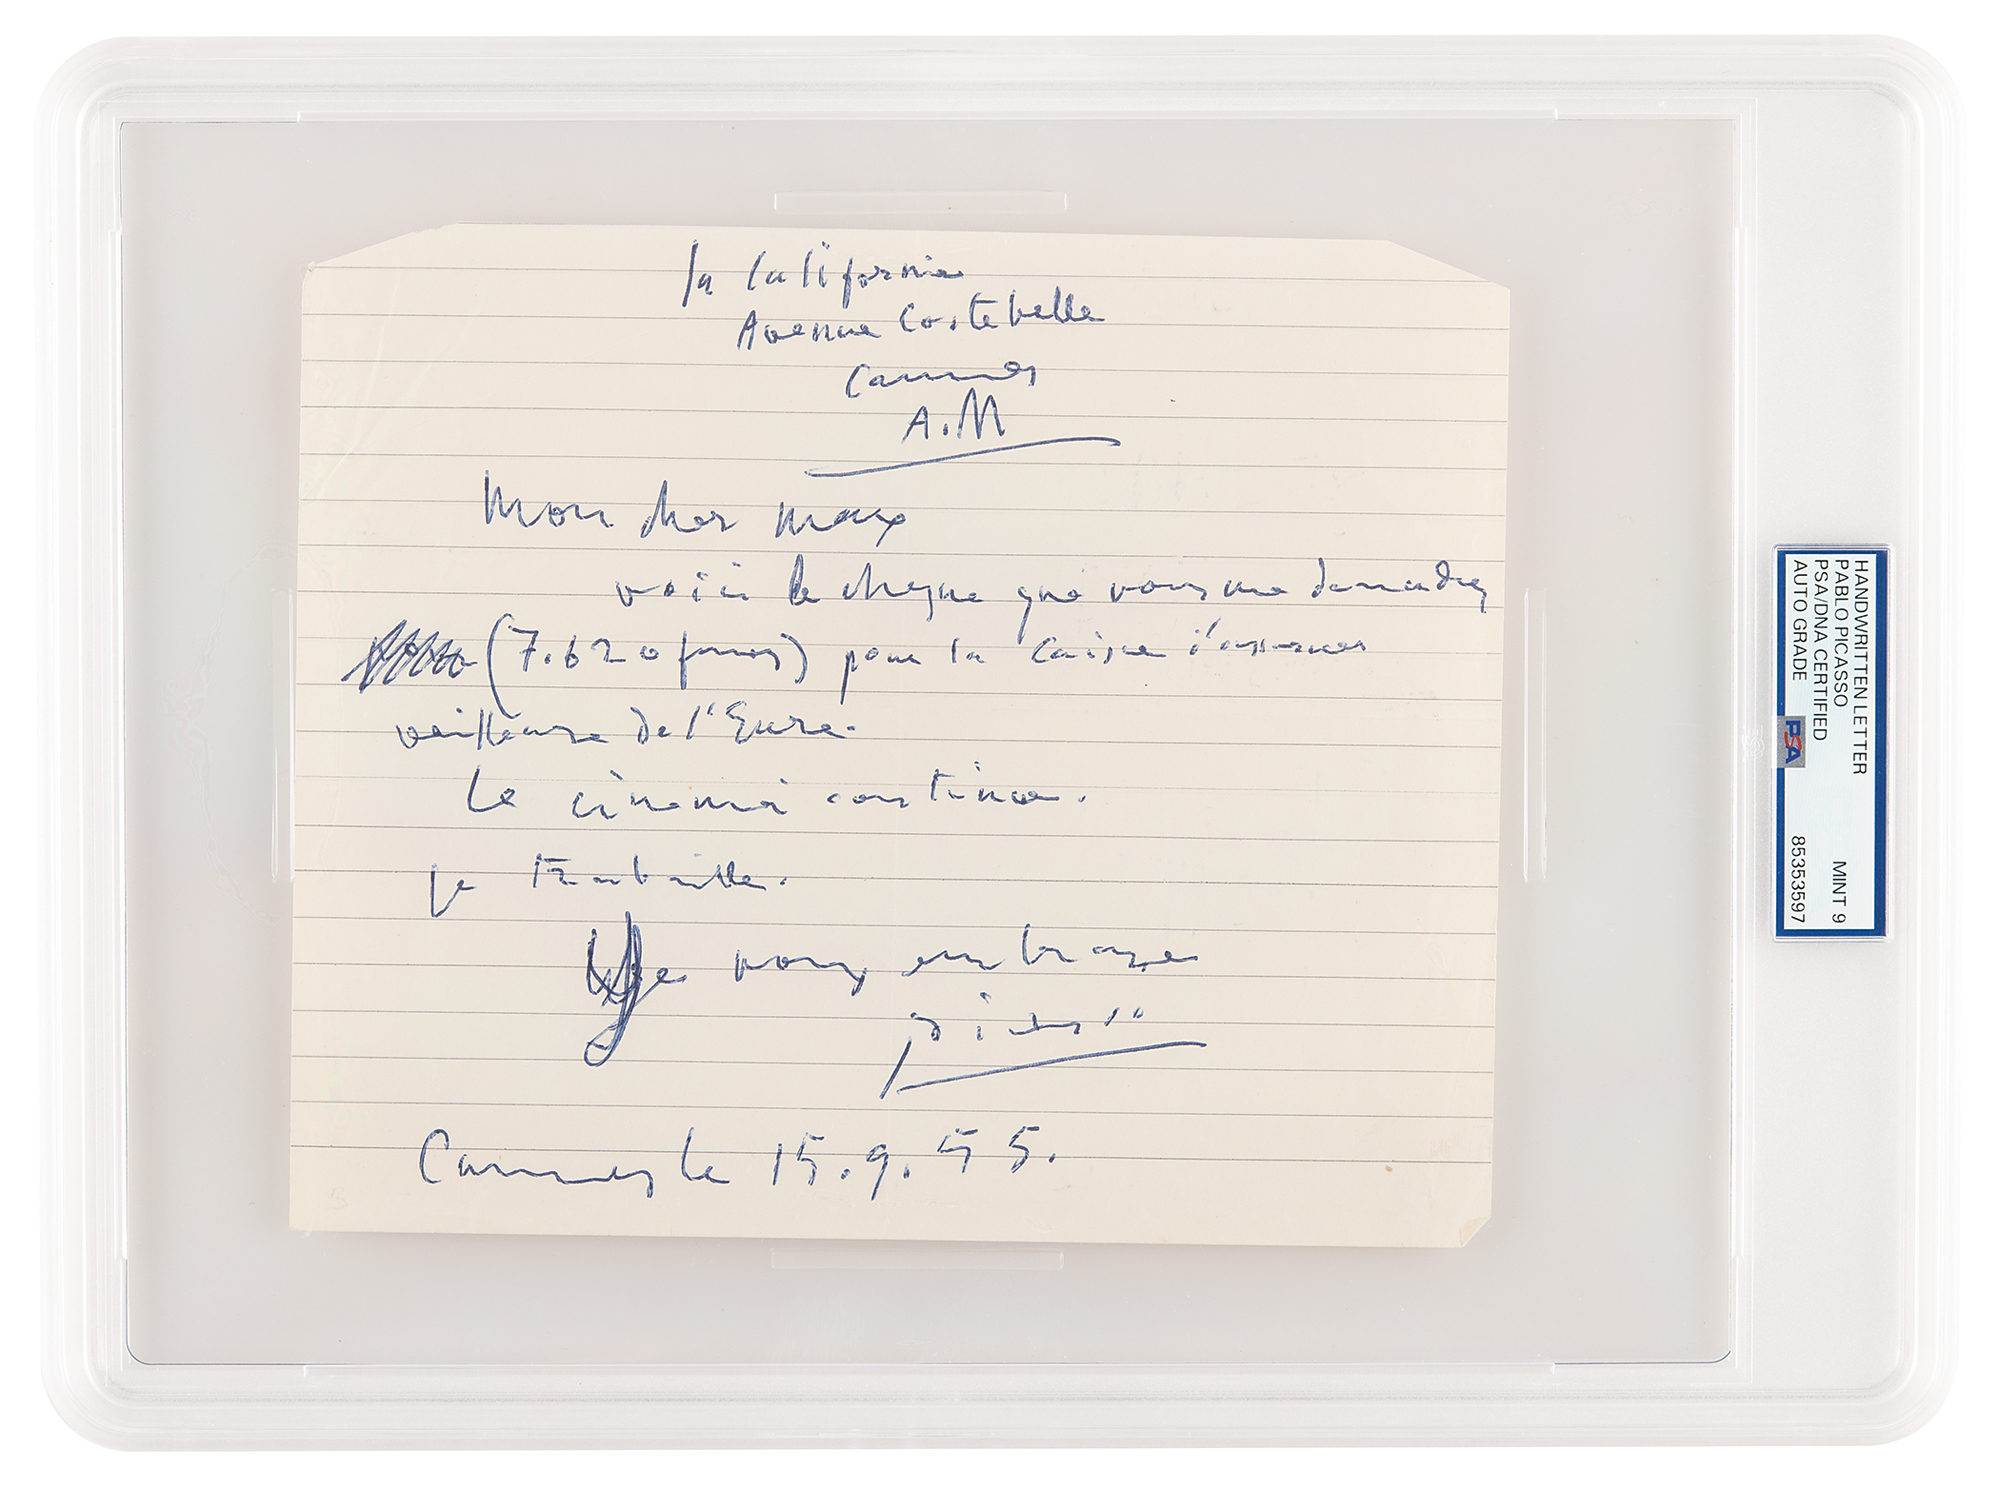 la California
Avenue Costebelle
Cannes
A.M
Mon cher Max
voici le cheque que vous me demandez
(7.620 francs) pour la caisse d'assurances
veilleuse de l'Eure.
Le cinema continue.
je travaille.
Je vous embrasse
Picasso
Cannes le 15.9.55.
HANDWRITTEN LETTER
PABLO PICASSO
PSA/DNA CERTIFIED
AUTO GRADE
MINT 9
85353597
PSA